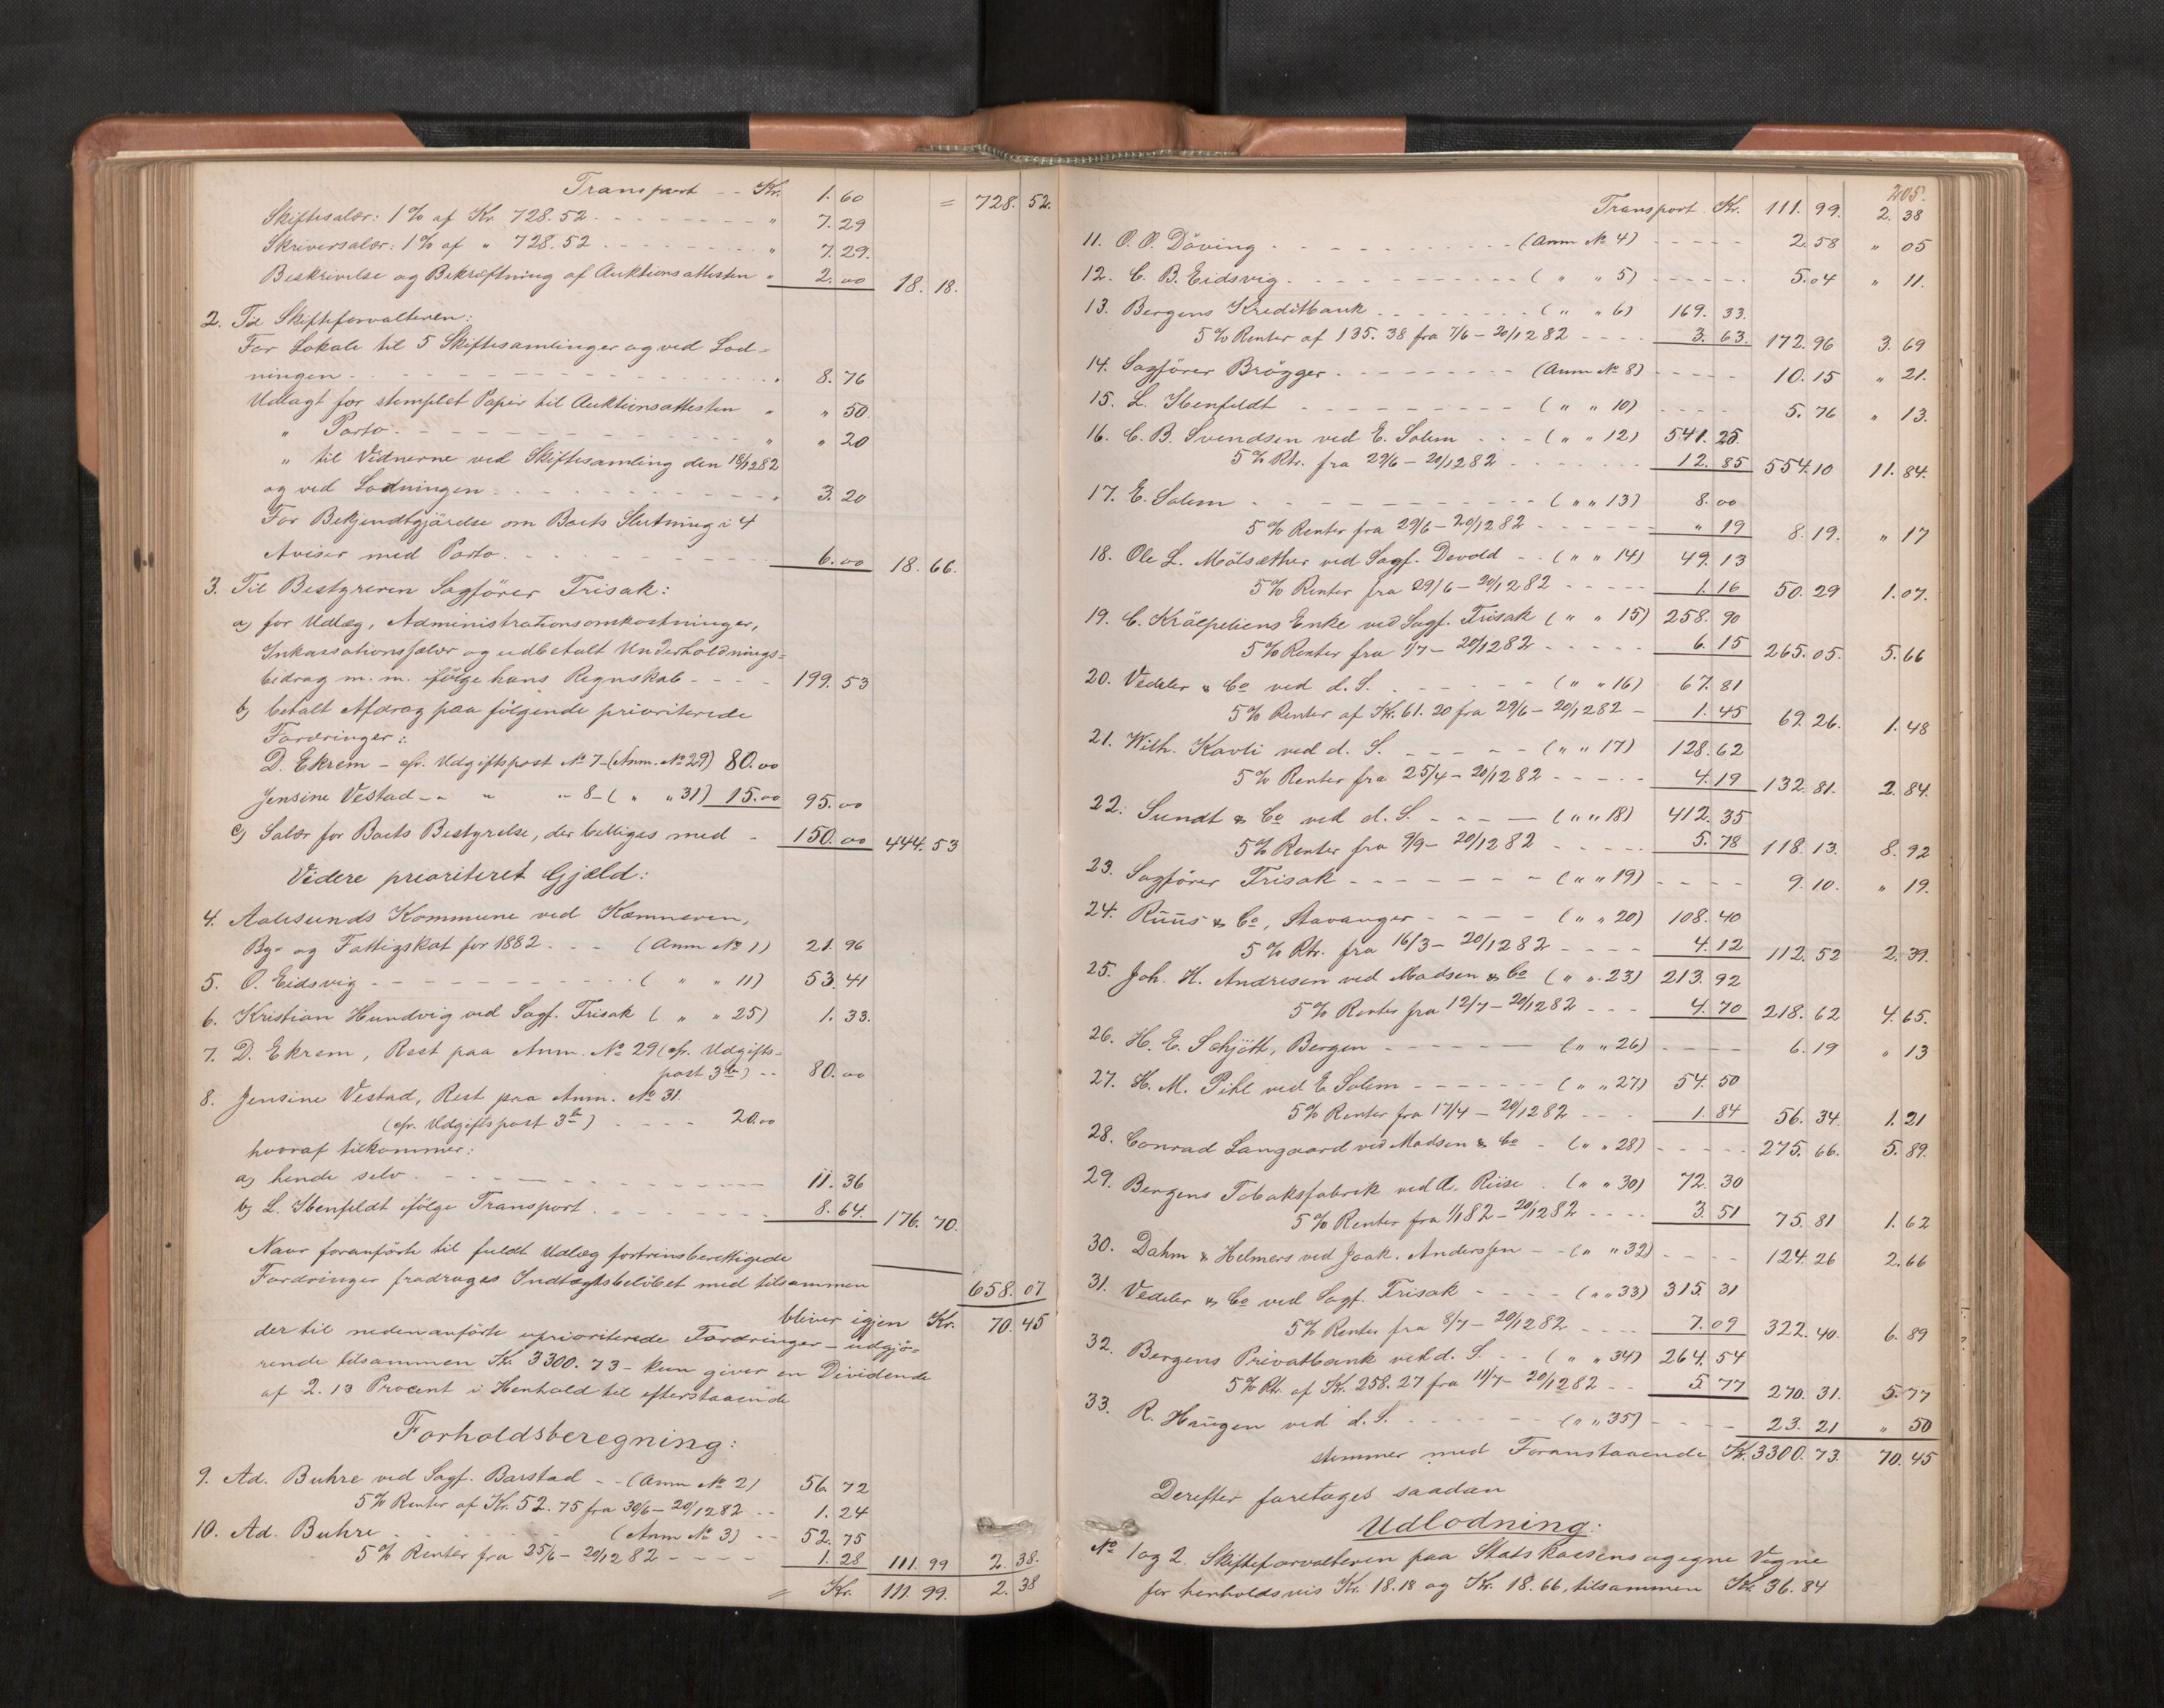 Transport -- Kr. 1.60 = 728.52.
Skiftesalær: 1% af Kr. 728.52 - - - " 7.29
Skriversalær: 1% af " 728.52 - - - " 7.29.
Beskrivelse og Bekræftning af Auktionsattesten " 2.00 18.18.
2. Til Skifteforvalteren:
For Lokale til 5 Skiftesamlinger og ved Lod-
ningen - - - " 8.76
Udlagt for stemplet Papir til Auktionsattesten " " 50.
" Porto - - - " " 20
" til Vidnerne ved Skiftesamling den 18/12 82
og ved Lodningen - - - " 3.20
For Bekjendtgjørelse om Boets Slutning i 4
Aviser med Porto - - - 6.00 18.66.
3. Til Bestyreren Sagfører Trisak:
a) for Udlæg, Administrationsomkostninger,
Inkassationssalær og udbetalt Underholdnings-
bidrag m.m. ifølge hans Regnskab - - - 199.53
b) betalt Afdrag paa følgende prioriterede
Fordringer:
D. Ekrem - cfr. Udgiftspost No 7 - (Anm. No 29) 80.00
Jensine Vestad - " " " 8 - ( " " 31) 15.00 95.00
c) Salær for Boets Bestyrelse, der billiges med - 150.00 444.53
Videre prioriteret Gjæld:
4. Aalesunds Kommune ved Kæmneren,
By- og Fattigskat for 1882 - - - (Anm No 1) 21.96
5. O. Eidsvig - - - ( " " 11) 53.41
6. Kristian Hundvig ved Sagf. Trisak ( " " 25) 1.33.
7. D. Ekrem, Rest paa Anm. No 29 (cfr. Udgifts-
post 3b) -- 80.00
8. Jensine Vestad, Rest paa Anm. No 31.
(cfr. Udgiftspost 3b) - - - 20.00
hvoraf tilkommer:
a) hende selv - - - 11.36
b) L. Ibenfeldt ifølge Transport - - - 8.64. 176.70.
Naar foranførte til fuldt Udlæg fortrinsberettigede
Fordringer fradrages Indtægtsbeløbet med tilsammen 658.07
bliver igjen Kr. 70.45
der til nedenanførte uprioriterede Fordringer - udgjø-
rende tilsammen Kr. 3300.73 - kun giver en Dividende
af 2.13 Procent i Henhold til efterstaaende
Forholdsberegning:
9. Ad. Buhre ved Sagf. Barstad - - (Anm No 2) 56.72
5% Renter af Kr. 52.75 fra 30/6 - 20/12 82 -- 1.24
10. Ad. Buhre - - - (Anm No 3) -- 52.75
5% Renter fra 25/6 - 20/12 82 - - - 1.28 111.99 2.38.
= Kr. 111.99. 2.38
205.
Transport Kr. 111.99. 2.38
11. O. O. Döving - - - (Anm No 4) - - - 2.58 " 05
12. C. B. Eidsvig - - - ( " " 5) - - - 5.04 " 11.
13. Bergens Kreditbank - - - ( " " 6) 169.33.
5% Renter af 135.38 fra 7/6 - 20/12 82 - - - 3.63. 172.96 3.69
14. Sagfører Brögger - - - (Anm No 8) - - - 10.15 " 21.
15. L. Ibenfeldt - - - ( " " 10) - - - 5.76 " 13.
16. C. B. Svendsen ved E. Solem - - - ( " " 12) 541.25.
5% Rtr. fra 29/6 - 20/12 82 - - - 12.85 554.10 11.84.
17. E. Solem - - - ( " " 13) 8.00
5% Renter fra 29/6 - 20/12 82 - - - " 19 8.19. " 17
18. Ole L. Molsæther ved Sagf. Devold - - ( " " 14) 49.13
5% Renter fra 29/6 - 20/12 82 - - - 1.16 50.29 1.07.
19. C. Kräpeliens Enke ved Sagf. Trisak ( " " 15) 258.90
5% Renter fra 1/7 - 20/12 82 - - - 6.15 265.05. 5.66
20. Vedeler & Co ved d. S. - - - ( " " 16) 67.81
5% Renter af Kr. 61.20 fra 29/6 - 20/12 82 - 1.45 69.26. 1.48
21. Wilh. Kavli ved d. S. - - - ( " " 17) 128.62
5% Renter fra 25/4 - 20/12 82 - - - 4.19 132.81. 2.84.
22. Sundt & Co ved d. S. - - - ( " " 18) 412.35
5% Renter fra 9/9 - 20/12 82 - - - 5.78 118.13. 8.92
23. Sagfører Trisak - - - ( " " 19) - - - 9.10. " 19.
24. Ruus & Co, Stavanger - - - ( " " 20) 108.40
5% Rtr. fra 16/3 - 20/12 82 - - - 4.12 112.52 2.39.
25. Joh. H. Andresen ved Madsen & Co ( " " 23) 213.92
5% Renter fra 12/7 - 20/12 82 - - - 4.70 218.62 4.65.
26. H. E. Schjött, Bergen - - - ( " " 26) - - - 6.19 " 13
27. H. M. Pihl ved E Solem - - - ( " " 27) 54.50
5% Renter fra 17/4 - 20/12 82 - - - 1.84 56.34. 1.21
28. Conrad Langaard ved Madsen & Co - ( " " 28) - - - 275.66. 5.89.
29. Bergens Tobaksfabrik ved A. Riise . ( " " 30) 72.30
5% Renter fra 1/1 82 - 20/12 82 - - - 3.51 75.81 1.62
30. Dahm & Helmers ved Joak. Anderssen - - ( " " 32) - - - 124.26 2.66
31. Vedeler & Co ved Sagf. Trisak - - - ( " " 33) 315.31
5% Renter fra 8/7 - 20/12 82 - - - 7.09 322.40. 6.89
32. Bergens Privatbank ved d. S. - - ( " " 34) 264.54
5% Rtr. af Kr. 258.27 fra 11/7 - 20/12 82 - - 5.77 270.31. 5.77
33. R. Haugen ved d. S. - - - ( " " 35) - - - 23.21 " 50
stemmer med Foranstaaende Kr. 3300.73. 70.45
Derefter foretages saadan
Udlodning:
No 1 og 2. Skifteforvalteren paa Statskassens og egne Vegne
for henholdsvis Kr. 18.18 og Kr. 18.66, tilsammen Kr 36.84